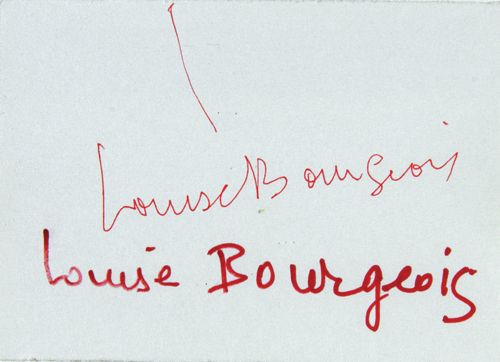 Louise Bourgeois
Louise Bourgeois